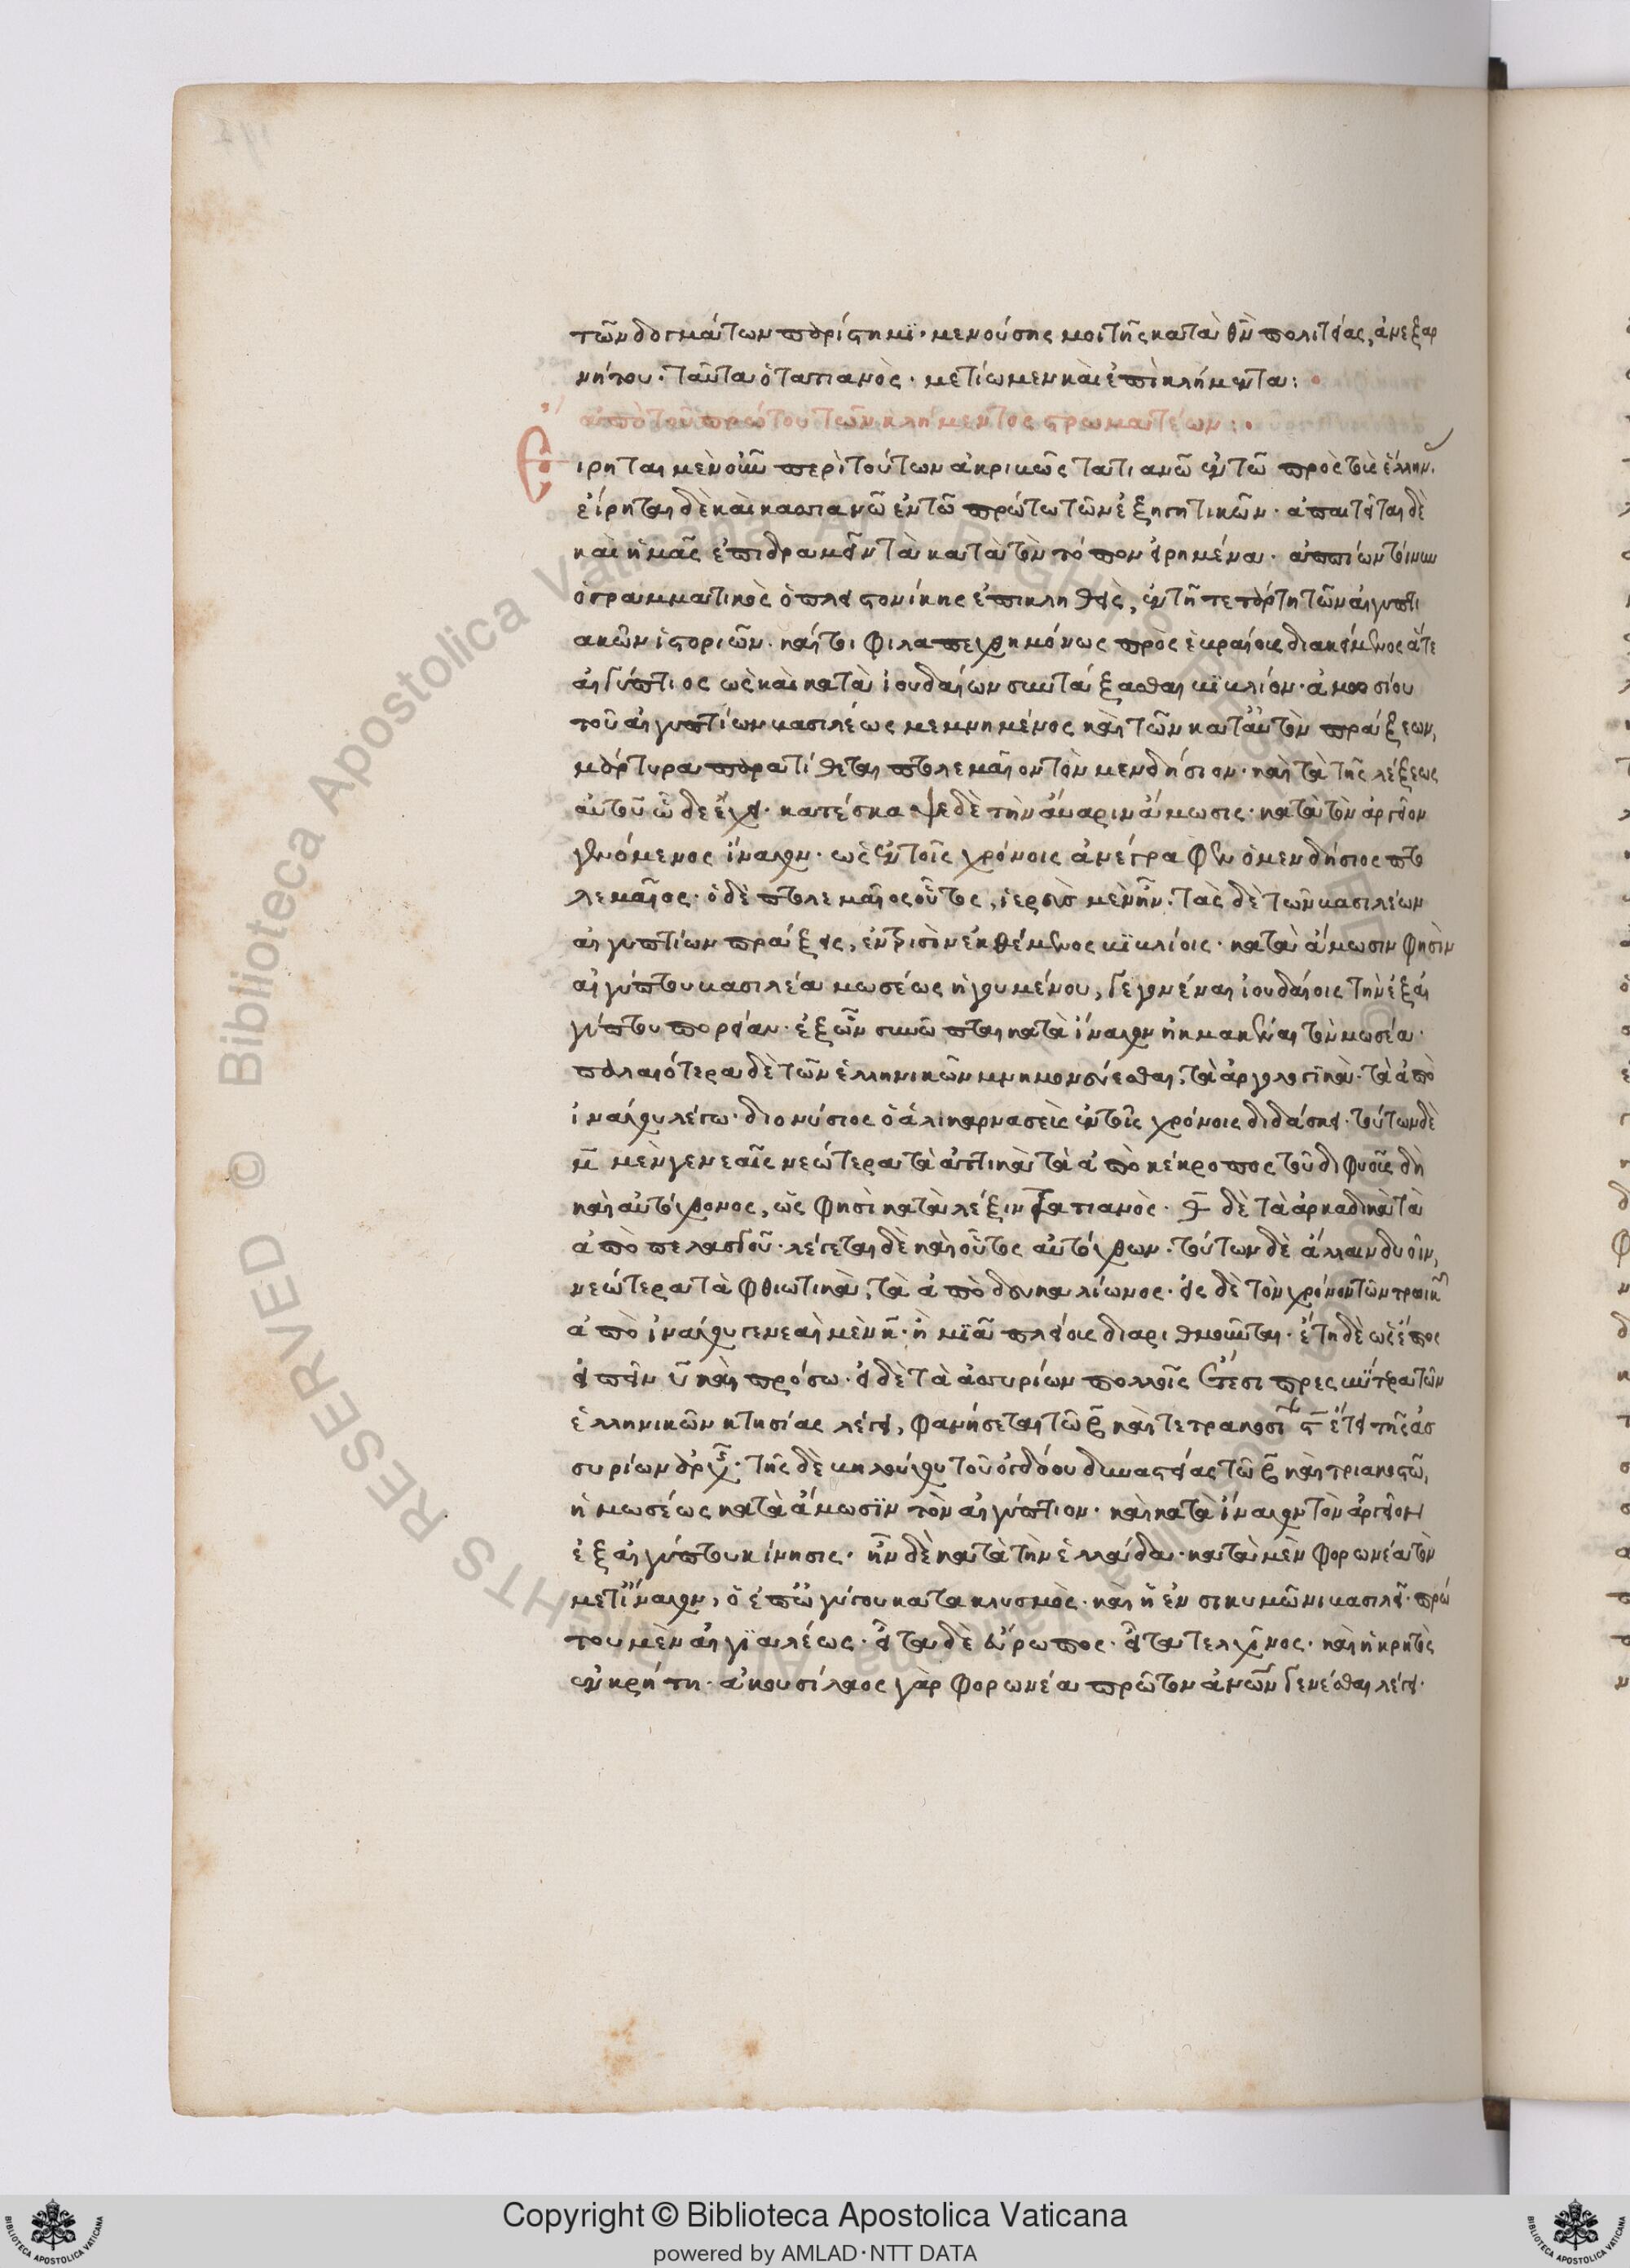 τῶν δογμάτων παρίστημι· μενούσης μοι τῆς κατὰ θν̄ πολιτείας, ἀνεξαρ
νήτου· ταῦτα ὁ τατιανὸς· μετίωμεν καὶ ἐπὶ κλήμεντα:
ἀπὸ τοῦ πρώτου τῶν κλήμεντος στρωματέων:
Εἴρηται μὲν οὖν περὶ τούτων ἀκριβῶς τατιανῶ ἐν τῶ πρὸς τοὺς ἕλλην.
εἴρηται δὲ καὶ κασσιανῶ ἐν τῶ πρώτω τῶν ἐξηγητικῶν· ἀπαιτεῖται δὲ
καὶ ἡμᾶς ἐπιδραμεῖν τὰ κατὰ τὸν τόπον εἰρημένα· ἀππίων τοίνυν
ὁ γραμματικὸς ὁ πλειστονίκης ἐπικληθεὶς, ἐν τῆ τετάρτη τῶν αἰγυπτι
ακῶν ἱστοριῶν· καίτοι φιλαπεχθημόνως πρὸς ἑβραίους διακείμενος ἅτε
αἰγύπτιος ὡς καὶ κατὰ ἰουδαίων συντάξασθαι βιβλίον· ἀμωσίου
τοῦ αἰγυπτίων βασιλέως μεμνημένος καὶ τῶν κατ' αὐτὸν πράξεων,
μάρτυρα παρατίθεται πτολεμαῖον τὸν μενδήσιον· καὶ τὰ τῆς λέξεως
αὐτοῦ ὧδε ἔχει· κατέσκαψε δὲ τὴν ἀυαριν ἄμωσις· κατὰ τὸν ἀργεῖον
γενόμενος ἴναχον· ὡς ἐν τοῖς χρόνοις ἀνέγραψεν ὁ μενδήσιος πτο
λεμαῖος· ὁ δὲ πτολεμαῖος οὗτος, ἱερεὺς μὲν ἦν· τὰς δὲ τῶν βασιλέων
αἰγυπτίων πράξεις, ἐν τρισὶν ἐκθέμενος βιβλίοις· κατὰ ἄμωσιν φησὶν
αἰγύπτου βασιλέα μωσέως ἡγουμένου, γεγονέναι ἰουδαίοις τὴν ἐξ αἰ
γύπτου πορείαν· ἐξ ὧν συνῶπται κατὰ ἴναχον ἠκμακέναι τὸν μωσέα·
παλαιότερα δὲ τῶν ἑλληνικῶν μνημονεύεσθαι, τὰ ἀργολικὰ· τὰ ἀπὸ
ἰνάχου λέγω· διονύσιος ὁ ἁλικαρνασεὺς ἐν τοῖς χρόνοις διδάσκει· τούτων δὲ
μ̄ μὲν γενεαῖς νεώτερα τὰ ἀττικὰ τὰ ἀπὸ κέκροπος τοῦ διφυοῦς δὴ
καὶ αὐτόχθονος, ὥς φησὶ κατὰ λέξιν τατιανὸς· θ̄ δὲ τὰ ἀρκαδικὰ τὰ
ἀπὸ πελασγοῦ· λέγεται δὲ καὶ οὗτος αὐτόχθων· τούτων δὲ ἄλλαιν δυοῖν,
νεώτερα τὰ φθιωτικὰ, τὰ ἀπὸ δευκαλίωνος· εἰς δὲ τὸν χρόνον τῶν τρωικῶν
ἀπὸ ἰνάχου γενεαὶ μὲν κ̄· ἢ μιᾶ πλείους διαριθμοῦνται· ἔτη δὲ ὡς ἔπος
εἰπεῖν ῡ καὶ πρόσω· εἰ δὲ τὰ ἀσσυρίων πολλοῖς ἔτεσι πρεσβύτερα τῶν
ἑλληνικῶν κτησίας λέγει, φανήσεται τῶ β̄ καὶ τετρακοσιοστῶ ἔτει τῆς ἀσ
συρίων ἀρχῆς· τῆς δὲ βηλούχου τοῦ ὀγδόου δυναστείας τῶ β̄ καὶ τριακοστῶ,
ἡ μωσέως κατὰ ἄμωσιν τὸν αἰγύπτιον· καὶ κατὰ ἴναχον τὸν ἀργεῖον
ἐξ αἰγύπτου κίνησις· ἦν δὲ κατὰ τὴν ἑλλάδα· κατὰ μὲν φορωνέα τὸν
μετ' ἴναχον, ὁ ἐπὶ ὠγύγου κατακλυσμὸς· καὶ ἡ ἐν σικυῶνι βασιλεία· πρώ
του μὲν αἰγιαλέως· εἶτα δὲ εὔρωπος· εἶτα τελχῖνος· καὶ ἡ κρητὸς
ἐν κρήτη· ἀκουσίλαος γὰρ φορωνέα πρῶτον ἀνων̄ γενέσθαι λέγει·